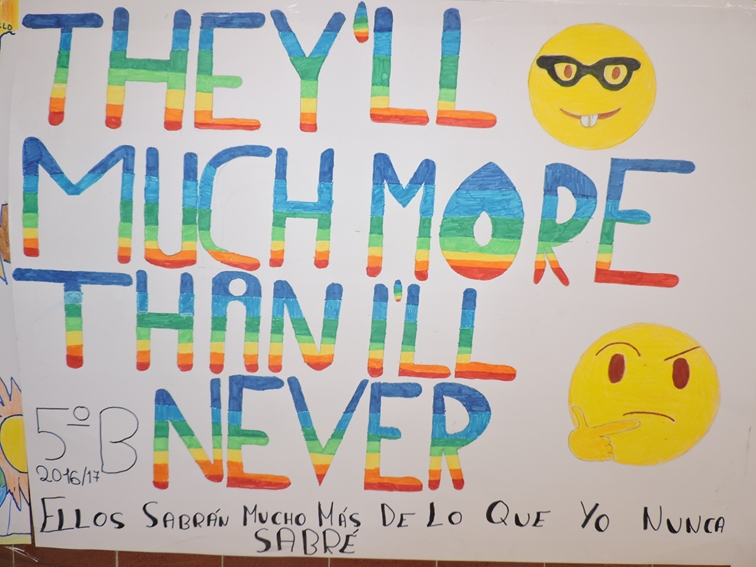 THEY'LL
MUCH MORE
THAN I'LL
NEVER
5º B
2016/17
ELLOS SABRÁN MUCHO MÁS DE LO QUE YO NUNCA
SABRÉ